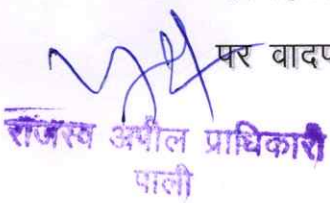 पर वादप
राजस्व अपील प्राधिकारी
पाली